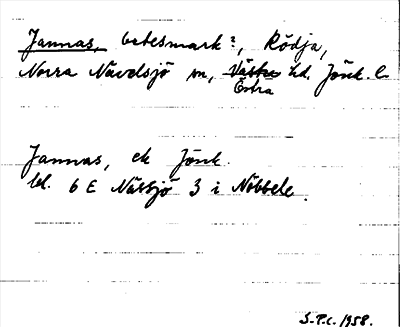 Jannas, betesmark?, Rödja,
Norra Nävelsjö sn, Västra hd. Jönk. l.
Östra
Jannas, ek Jönk.
bl. 6 E Nässjö 3 i Nöbbele.
S.P.C. 1958.